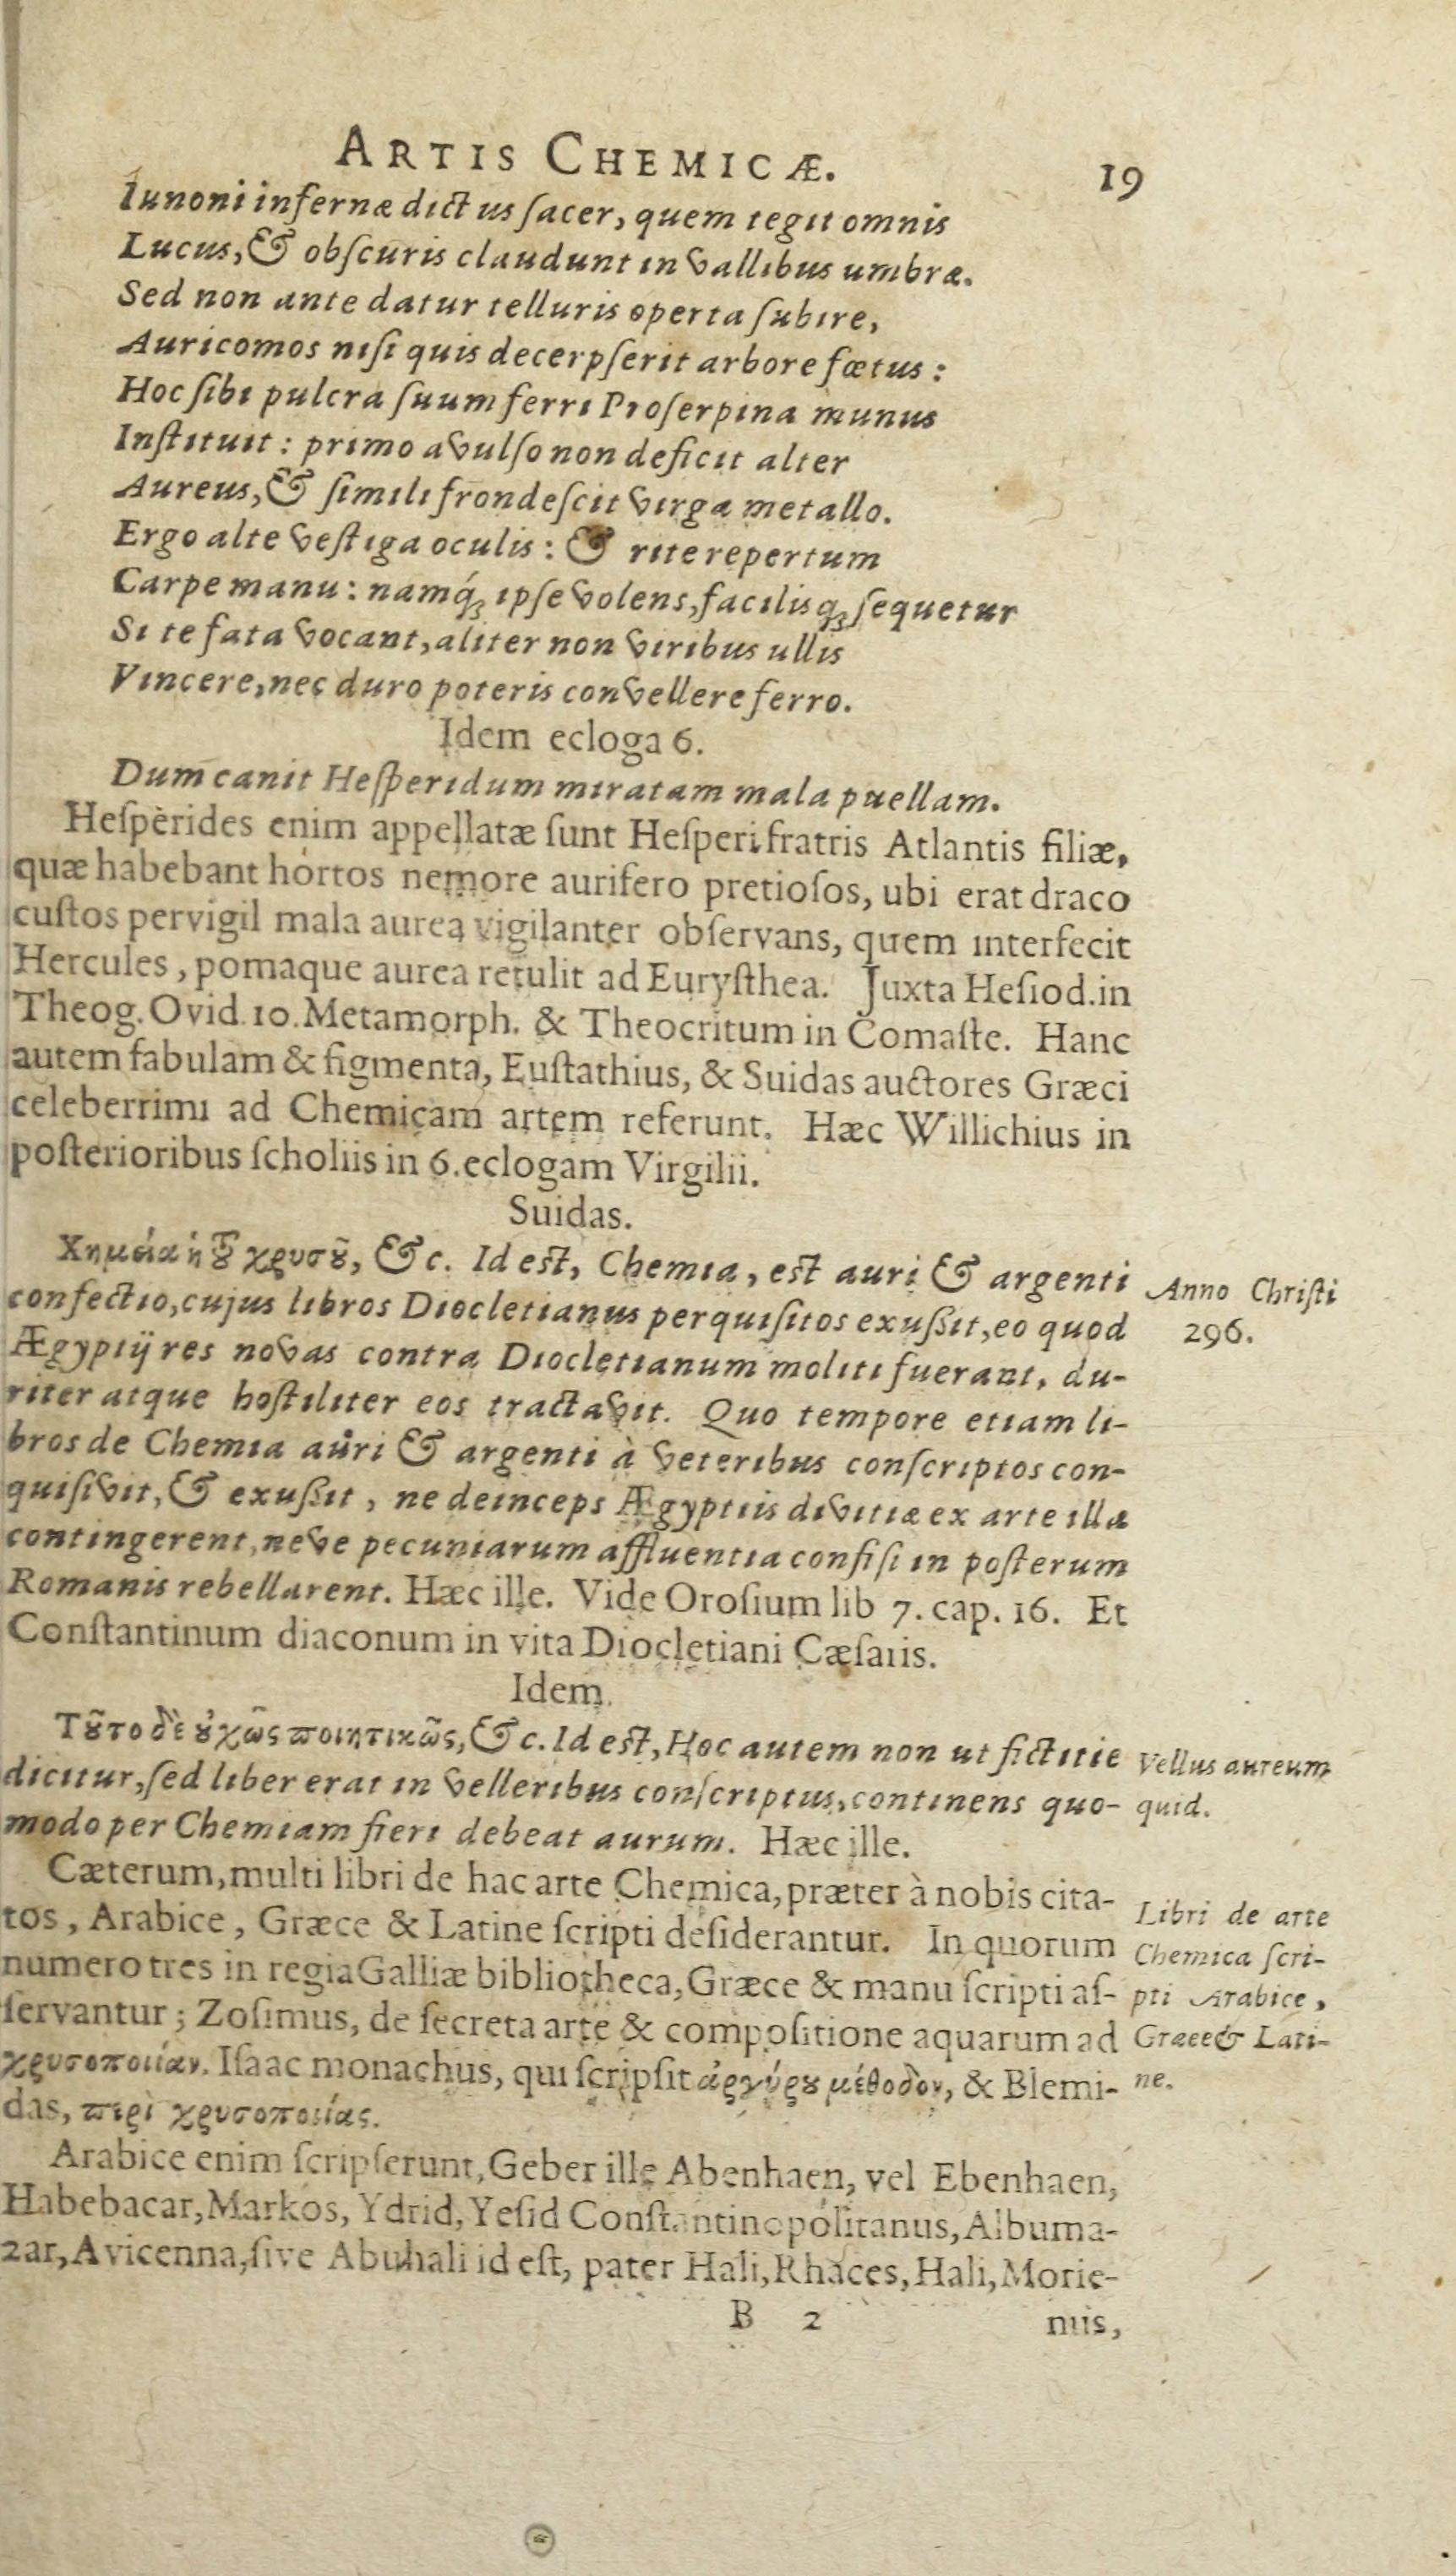 ARTIS CHEMICÆ. 19
Iunoni infernæ dictus ſacer, quem tegit omnis
Lucus, & obſcuris claudunt in vallibus umbræ.
Sed non ante datur telluris operta ſubire,
Auricomos niſi quis decerpſerit arbore fœtus:
Hoc ſibi pulcra ſuum ferri Proſerpina munus
Inſtituit: primo avulſo non deficit alter
Aureus, & ſimili frondeſcit virga metallo.
Ergo alte veſtiga oculis: & rite repertum
Carpe manu: namq́ꝫ ipſe volens, facilisqꝫ ſequetur
Si te fata vocant, aliter non viribus ullis
Vincere, nec duro poteris convellere ferro.
Idem ecloga 6.
Dum canit Heſperidum miratam mala puellam.
Heſpèrides enim appellatæ ſunt Heſperi fratris Atlantis filiæ,
quæ habebant hortos nemore aurifero pretioſos, ubi erat draco
cuſtos pervigil mala aurea vigilanter obſervans, quem interfecit
Hercules, pomaque aurea retulit ad Euryſthea. Juxta Heſiod. in
Theog. Ovid. 10. Metamorph. & Theocritum in Comaſte. Hanc
autem fabulam & figmenta, Euſtathius, & Suidas auctores Græci
celeberrimi ad Chemicam artem referunt. Hæc Willichius in
poſterioribus ſcholiis in 6. eclogam Virgilii.
Suidas.
Χημεία ἡ τȣ͂ χρυσȣ͂, &c. Id eſt, Chemia, eſt auri & argenti
confectio, cujus libros Diocletianus perquiſitos exuſſit, eo quod
Ægyptij res novas contra Diocletianum moliti fuerant, du-
riter atque hoſtiliter eos tractavit. Quo tempore etiam li-
bros de Chemia auri & argenti à veteribus conſcriptos con-
quiſivit, & exuſſit, ne deinceps Ægyptiis divitiæ ex arte illa
contingerent, neve pecuniarum affluentia confiſi in poſterum
Romanis rebellarent. Hæc ille. Vide Oroſium lib 7. cap. 16. Et
Conſtantinum diaconum in vita Diocletiani Cæſaris.
Anno Chriſti
296.
Idem.
Τȣ͂το δὲ ȣ̓χ ὡς ποιητικῶς, &c. Id eſt, Hoc autem non ut fictitie
dicitur, ſed liber erat in velleribus conſcriptus, continens quo-
modo per Chemiam fieri debeat aurum. Hæc ille.
Vellus aureum
quid.
Cæterum, multi libri de hac arte Chemica, præter à nobis cita-
tos, Arabice, Græce & Latine ſcripti deſiderantur. In quorum
numero tres in regia Galliæ bibliotheca, Græce & manu ſcripti aſ-
ſervantur; Zoſimus, de ſecreta arte & compoſitione aquarum ad
χρυσοποιίαν. Iſaac monachus, qui ſcripſit ἀργύρȣ μέθοδον, & Blemi-
das, περὶ χρυσοποιίας.
Libri de arte
Chemica ſcri-
pti Arabice,
Græce & Lati-
ne.
Arabice enim ſcripſerunt, Geber ille Abenhaen, vel Ebenhaen,
Habebacar, Markos, Ydrid, Yeſid Conſtantinopolitanus, Albuma-
zar, Avicenna, ſive Abuhali id eſt, pater Hali, Rhaces, Hali, Morie-
B 2 nus,